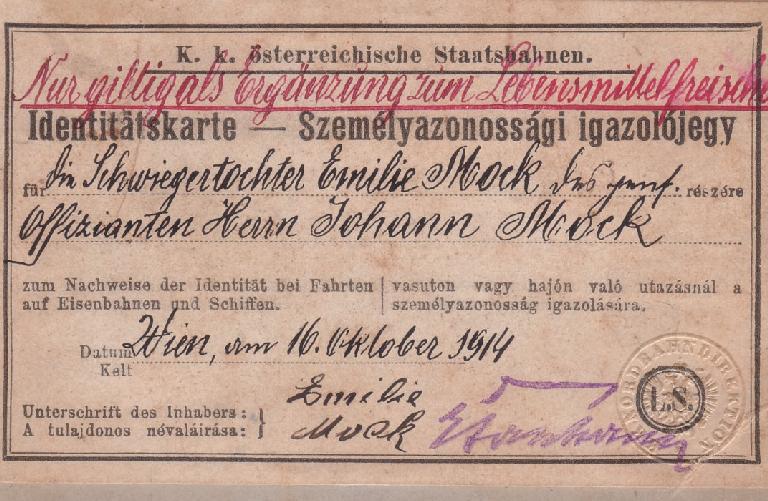 K. k. österreichische Staatsbahnen.
Nur giltig als Ergänzung zum Lebensmittelfreischei
Identitätskarte — Személyazonossági igazolójegy
für die Schwiegertochter Emilie Mock des pens. részére
Offizianten Herrn Johann Mock
zum Nachweise der Identität bei Fahrten auf Eisenbahnen und Schiffen.
vasuton vagy hajón való utazásnál a személyazonosság igazolására.
Datum Wien, am 16. Oktober 1914
Kelt
Unterschrift des Inhabers: Emilie
A tulajdonos névaláirása: Mock
L.S.
K.K. NORDBAHNDIREKTION